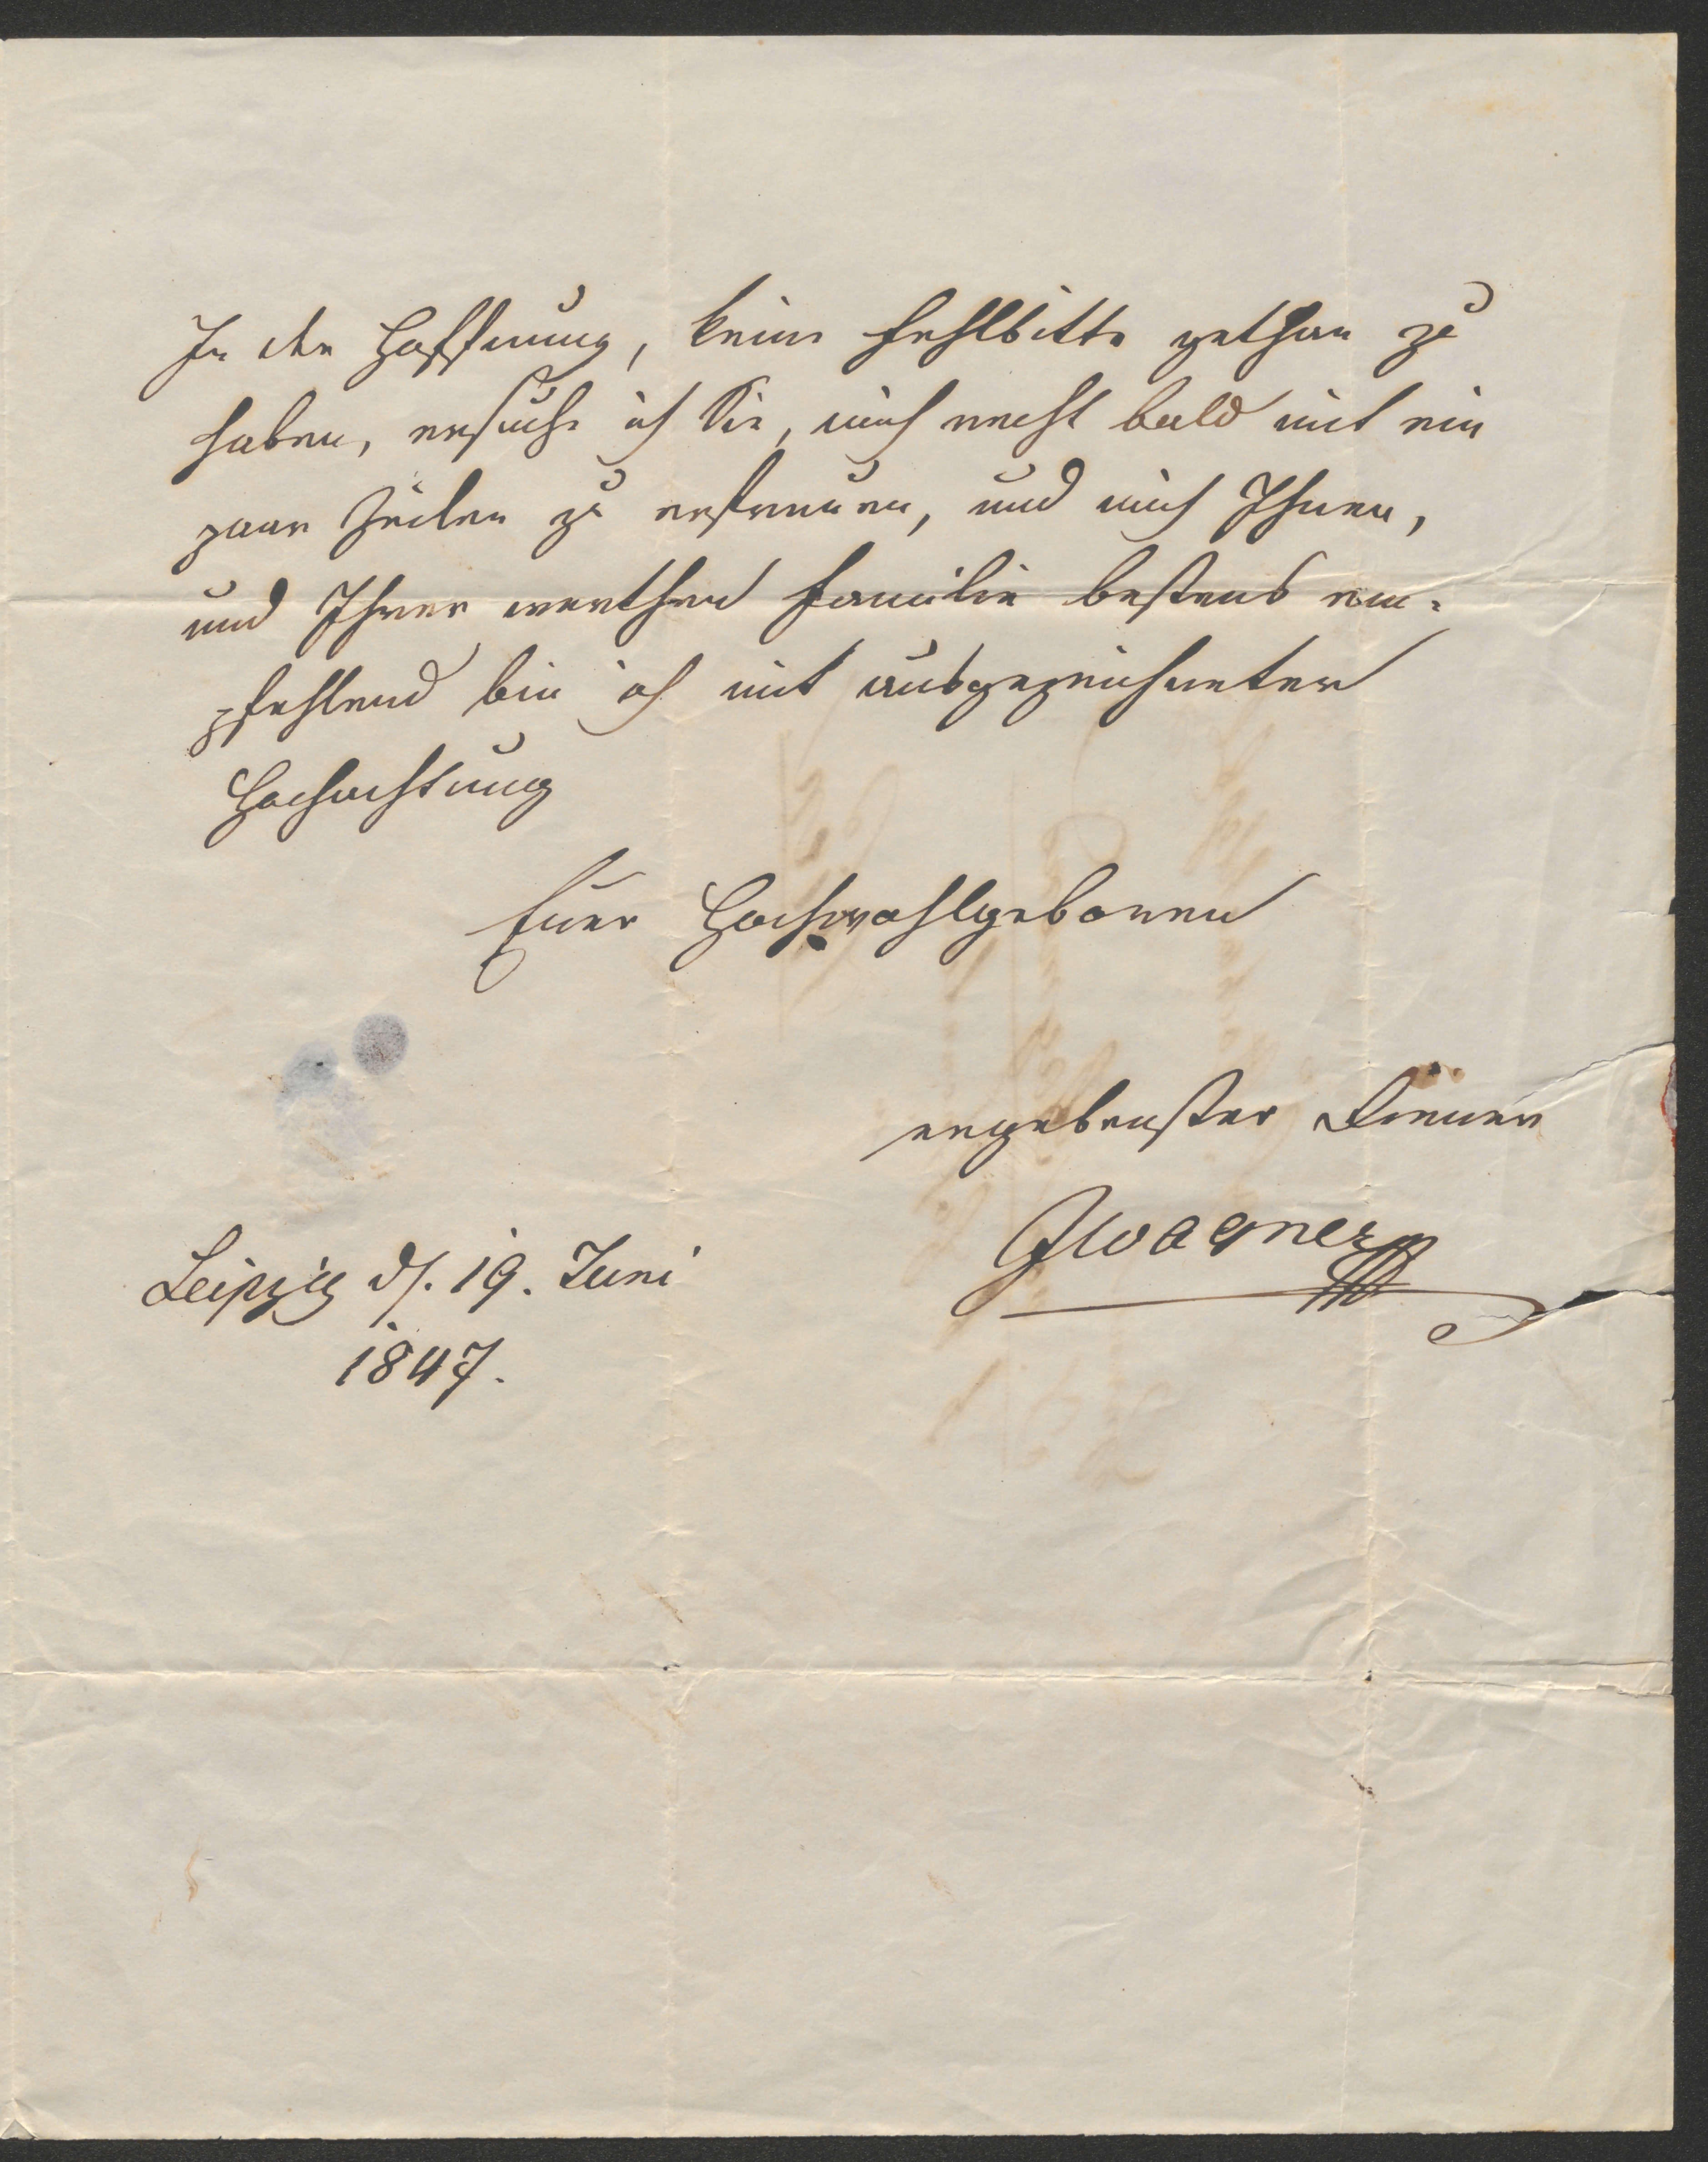 In der Hoffnung, keine Fehlbitte gethan zu
haben, ersuche ich Sie, mich recht bald mit ein
paar Zeilen zu erfreuen, und mich Ihnen,
und Ihrer werthen Familie bestens em-
pfehlend bin ich mit ausgezeichneter
Hochachtung
Euer Hochwohlgeboren
ergebenster Diener
JWagner
Leipzig d/. 19. Juni
1847.